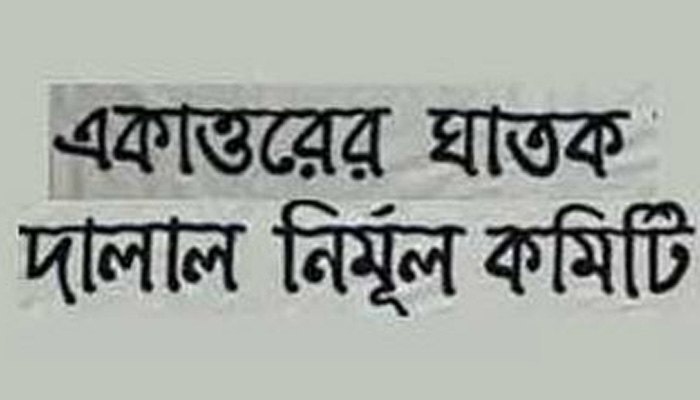 একাত্তরের ঘাতক
দালাল নির্মূল কমিটি